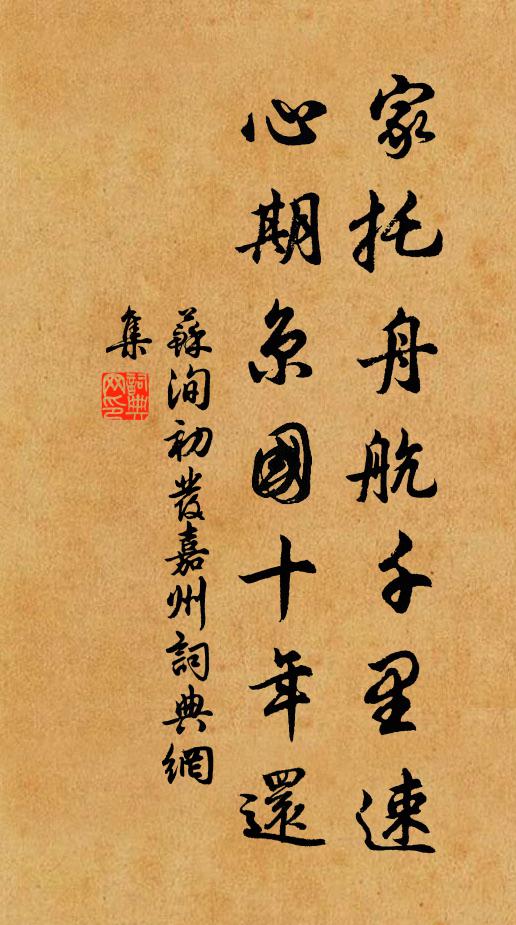 家托舟航千里速
心期京國十年還
蘇洵初發嘉州詞典網
集
詞典
网印